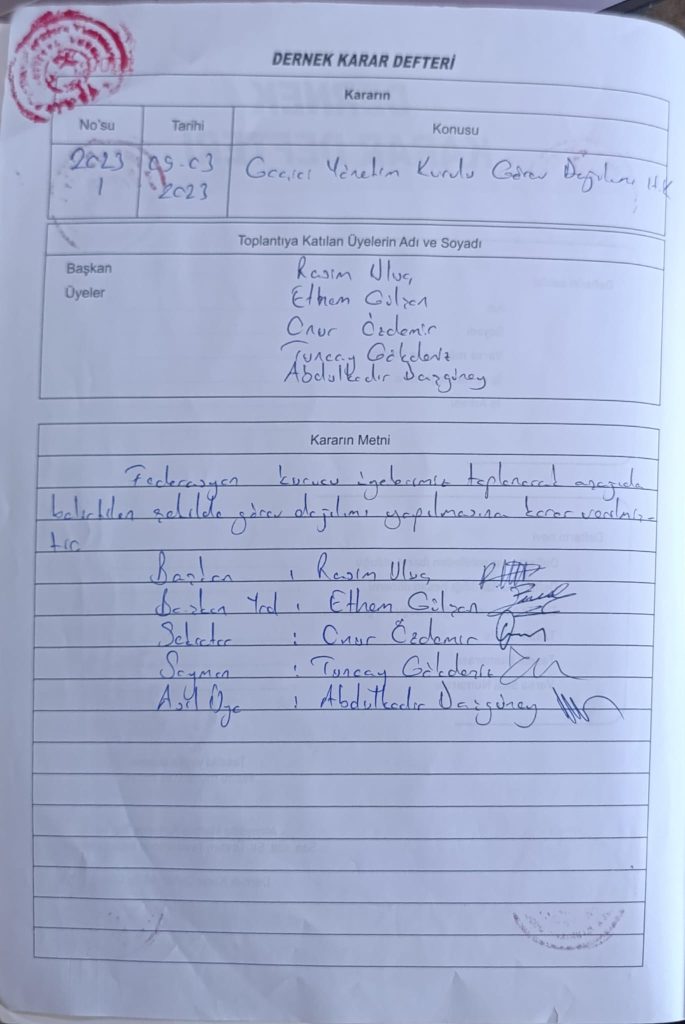 DERNEK KARAR DEFTERİ
Kararın
No'su Tarihi Konusu
2023 09.03 Geçici Yönetim Kurulu Görev Dağılımı H.K
1 2023
Toplantıya Katılan Üyelerin Adı ve Soyadı
Başkan Rasim Uluç
Üyeler Ethem Gülşen
Onur Özdemir
Tuncay Gökdeniz
Abdulkadir Dazgüney
Kararın Metni
Federasyon kurucu üyelerimiz toplanarak aşağıda
belirtilen şekilde görev dağılımı yapılmasına karar verilmiş-
tir.
Başkan : Rasim Uluç
Başkan Yrd : Ethem Gülşen
Sekreter : Onur Özdemir
Sayman : Tuncay Gökdeniz
Asil Üye : Abdulkadir Dazgüney